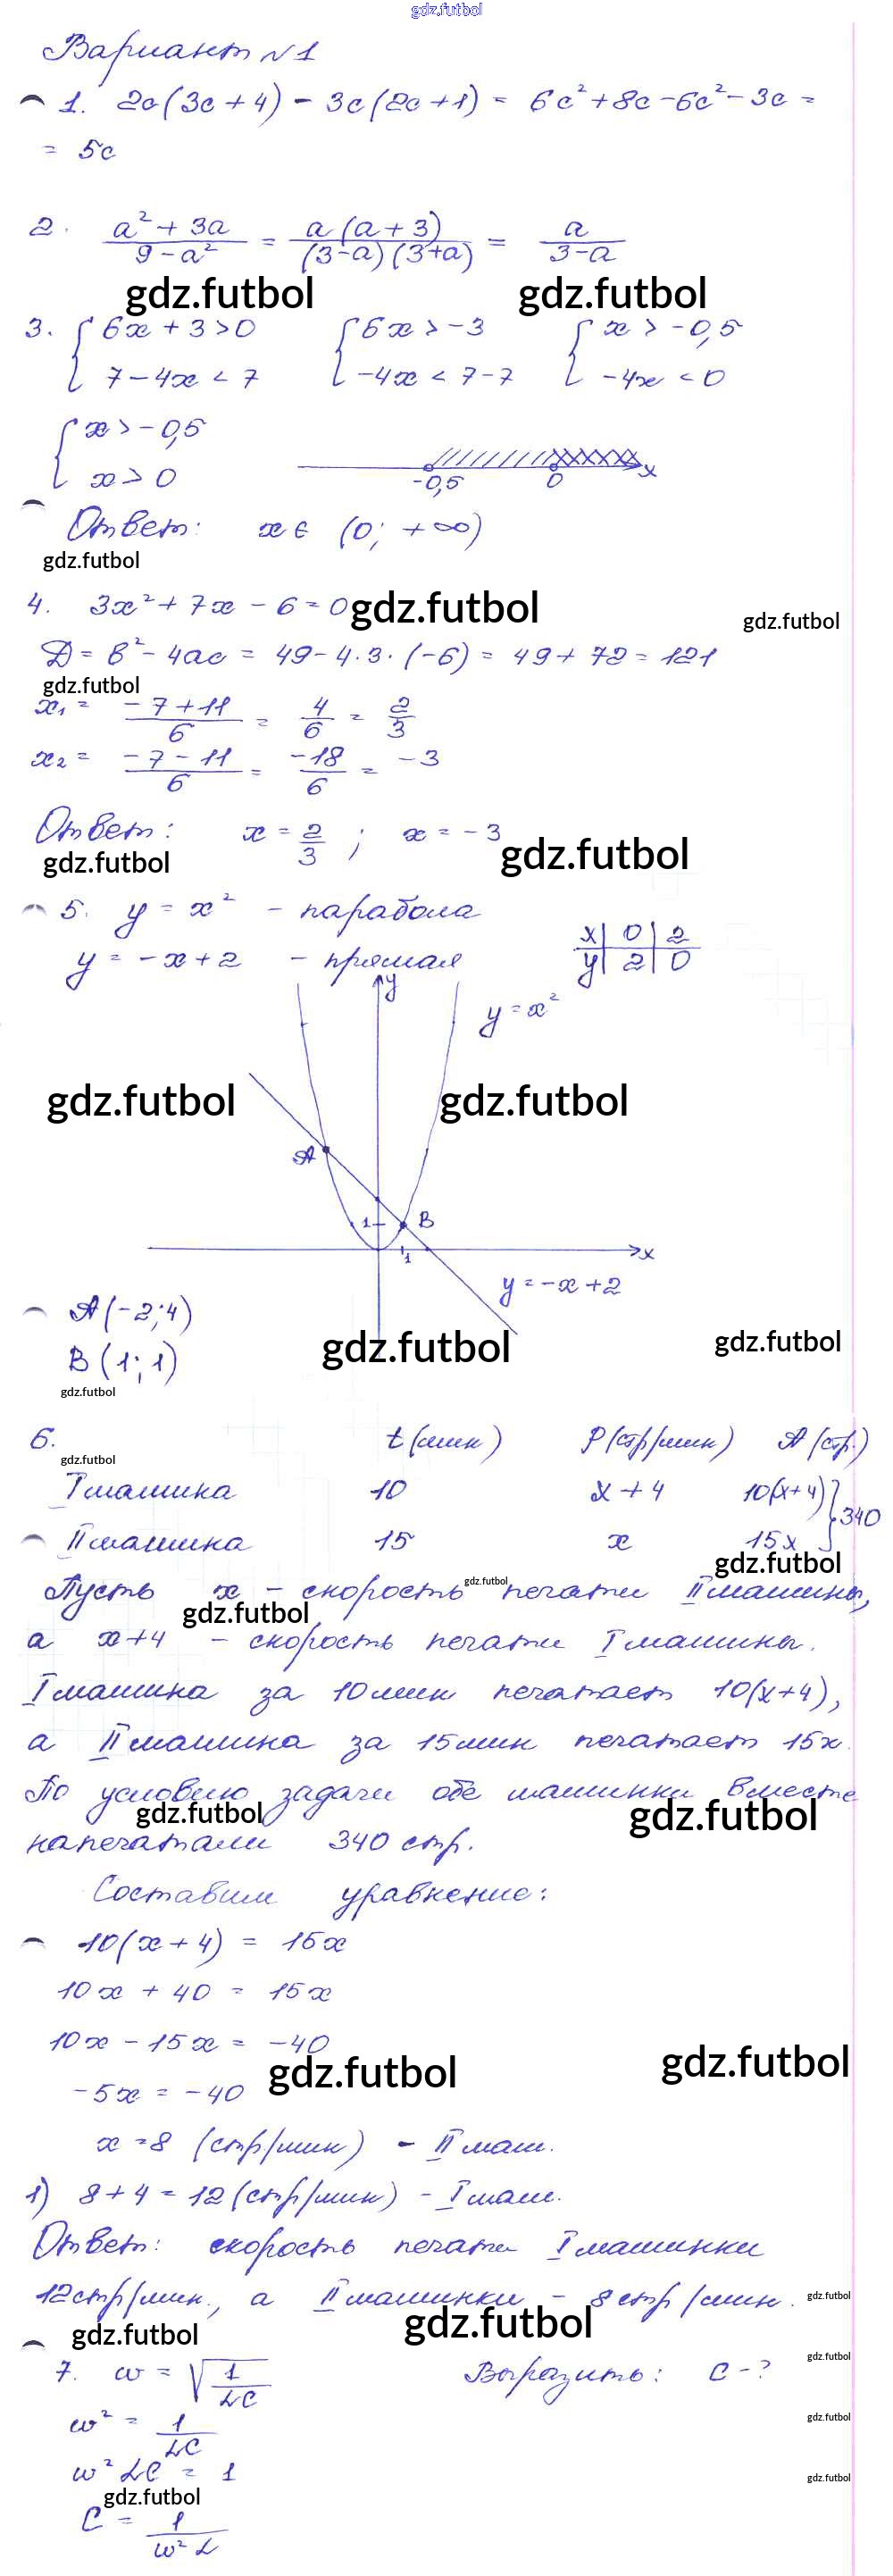 gdz.futbol
Вариант №1
1. 2c(3c+4) - 3c(2c+1) = 6c²+8c-6c²-3c =
= 5c
2. (a²+3a)/(9-a²) = a(a+3)/((3-a)(3+a)) = a/(3-a)
gdz.futbol gdz.futbol
3. { 6x+3>0 { 6x>-3 { x>-0,5
7-4x<7 -4x<7-7 -4x<0
{ x>-0,5
x>0
-0,5 0 x
Ответ: x ∈ (0; +∞)
gdz.futbol
4. 3x²+7x-6=0 gdz.futbol
gdz.futbol
D = b²-4ac = 49-4·3·(-6) = 49+72 = 121
gdz.futbol
x₁ = (-7+11)/6 = 4/6 = 2/3
x₂ = (-7-11)/6 = -18/6 = -3
Ответ: x = 2/3; x = -3
gdz.futbol gdz.futbol
5. y = x² - парабола
y = -x+2 - прямая
x | 0 | 2
y | 2 | 0
y
y = x²
gdz.futbol gdz.futbol
A
1 B
1 x
y = -x+2
A(-2; 4)
gdz.futbol gdz.futbol
B(1; 1)
gdz.futbol
6. t(мин) P(стр/мин) A(стр.)
gdz.futbol
I машина 10 x+4 10(x+4) } 340
II машина 15 x 15x
gdz.futbol
Пусть x - скорость gdz.futbol печати II машины,
gdz.futbol
а x+4 - скорость печати I машины.
I машина за 10 мин печатает 10(x+4),
а II машина за 15 мин печатает 15x.
По условию задачи обе машинки вместе
gdz.futbol gdz.futbol
напечатали 340 стр.
Составим уравнение:
10(x+4) = 15x
10x + 40 = 15x
10x - 15x = -40
gdz.futbol gdz.futbol
-5x = -40
x = 8 (стр/мин) - II маш.
1) 8+4 = 12 (стр/мин) - I маш.
Ответ: скорость печати I машинки
12 стр/мин., а II машинки - 8 стр/мин.
gdz.futbol
gdz.futbol gdz.futbol
7. w = √(1/LC) Выразить: C - ?
gdz.futbol
w² = 1/LC
gdz.futbol
w²LC = 1
gdz.futbol
gdz.futbol
C = 1/(w²L)